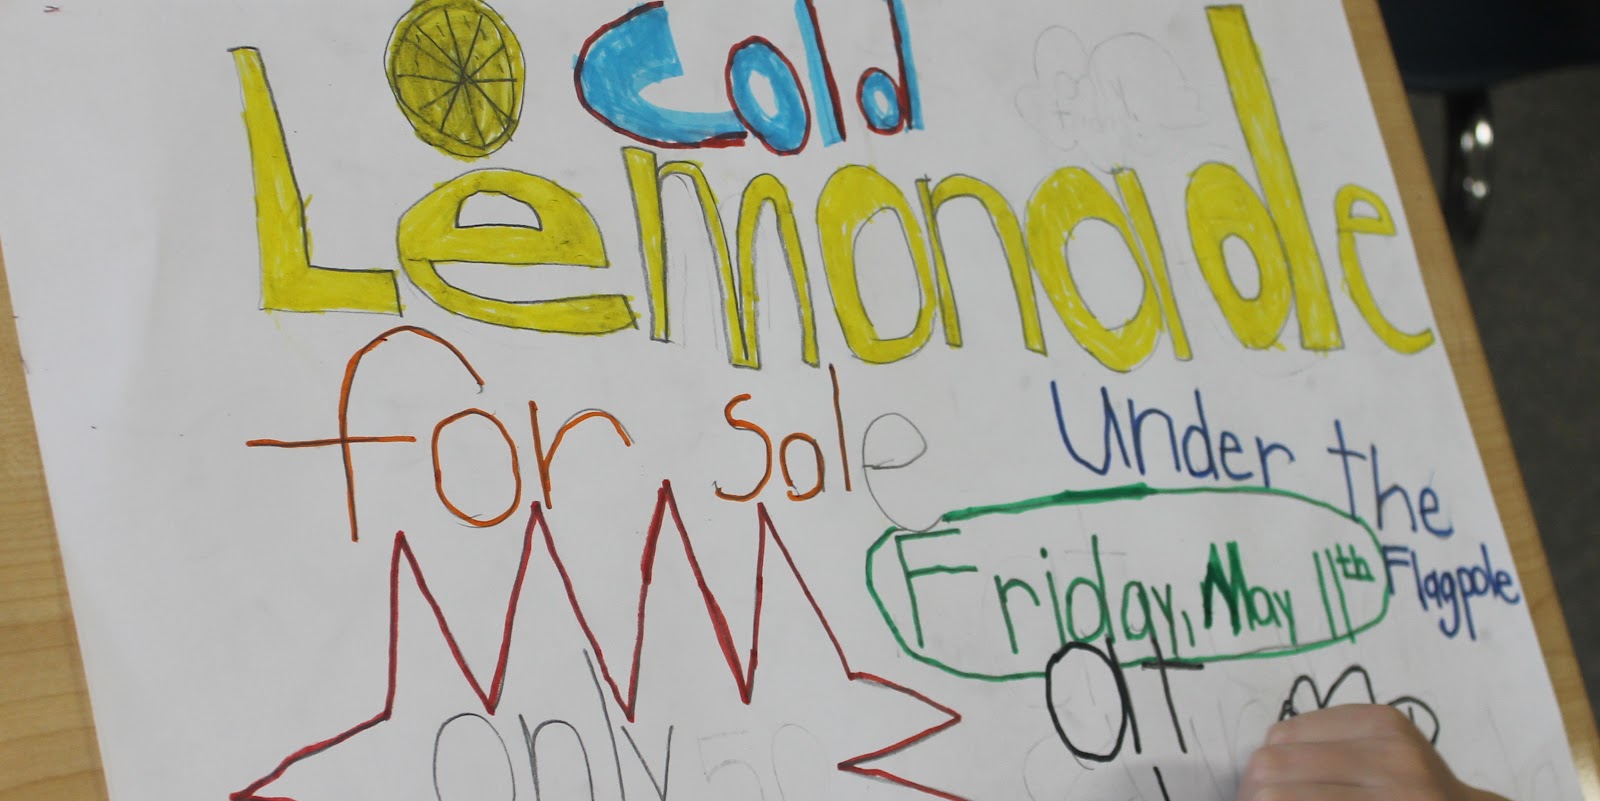 Cold
Lemonade
for sale
Under the
Flagpole
Friday, May 11th
at
only 50